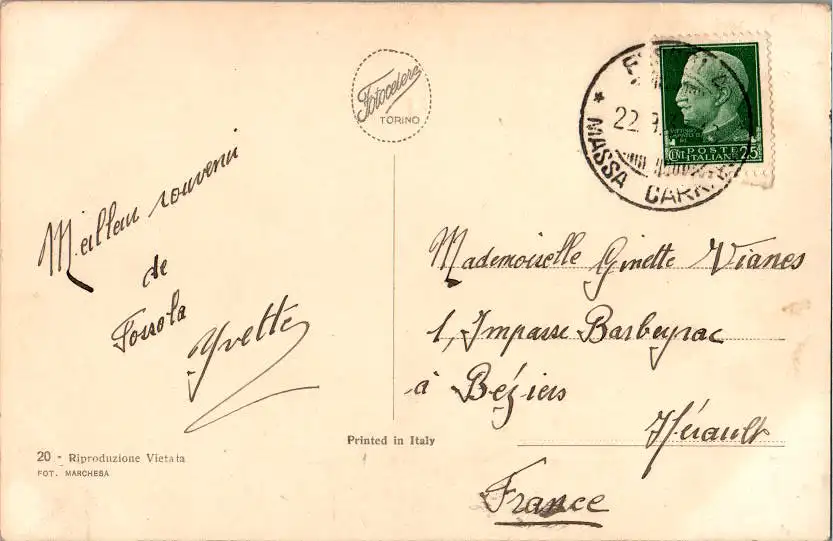 Fotocelere
TORINO
22
MASSA CARR
POSTE
ITALIANE
CENT 25
Meilleur souvenir
de
Fossola
Yvette
Mademoiselle Ginette Vianes
1, Impasse Barbeyrac
à Béziers
Hérault
France
Printed in Italy
20 - Riproduzione Vietata
FOT. MARCHESA